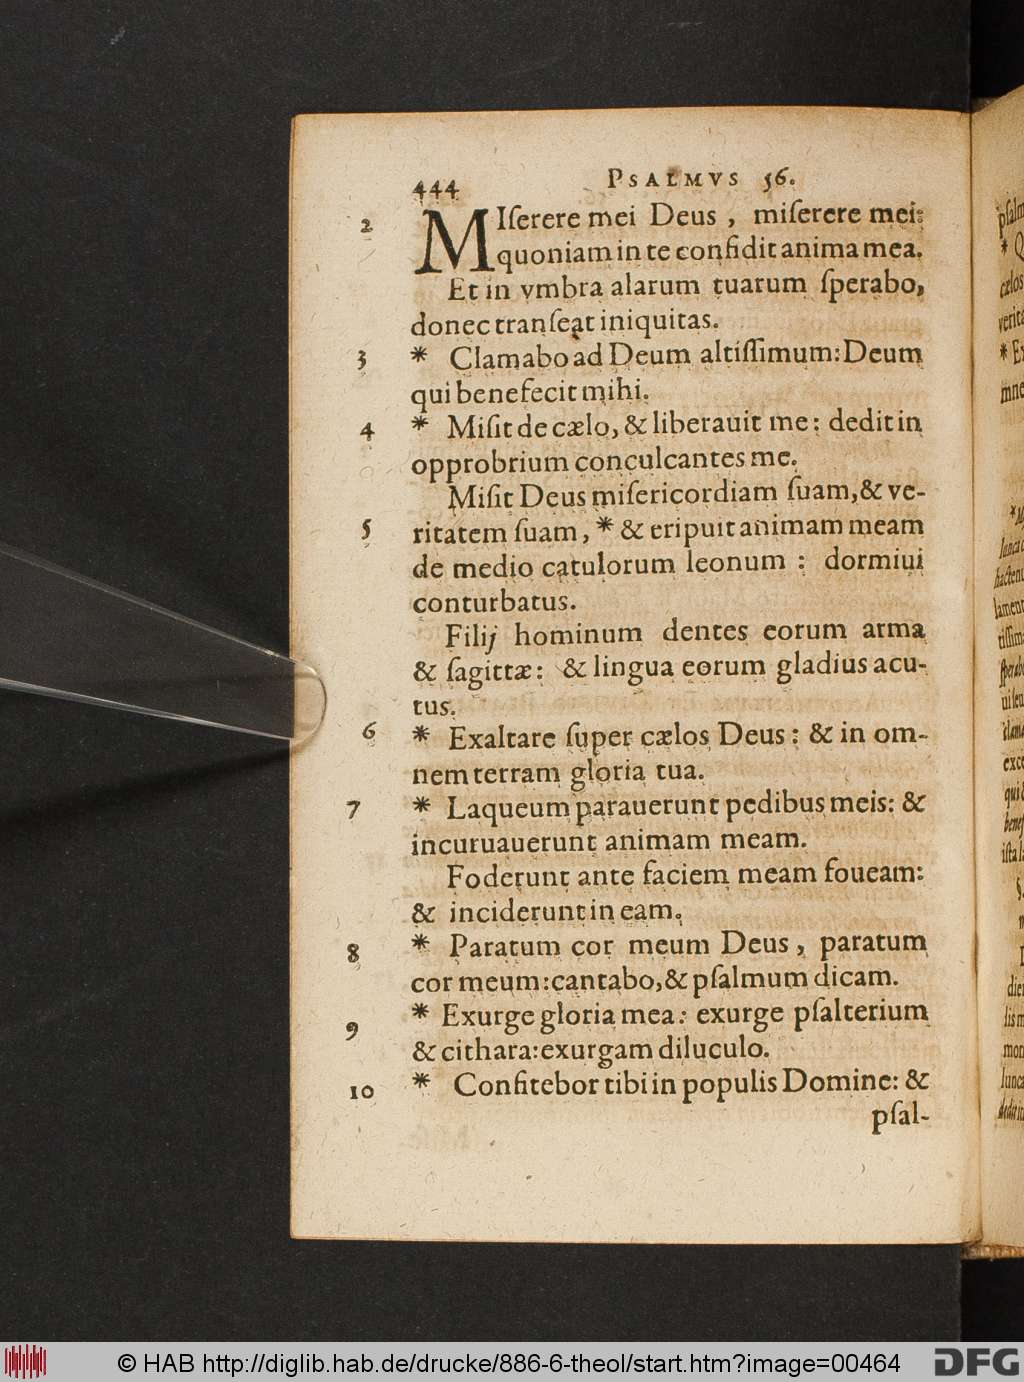 444 PSALMVS 56.
2 MIſerere mei Deus, miſerere mei:
quoniam in te confidit anima mea.
Et in vmbra alarum tuarum ſperabo,
donec tranſeat iniquitas.
3 * Clamabo ad Deum altiſſimum: Deum
qui benefecit mihi.
4 * Miſit de cælo, & liberauit me: dedit in
opprobrium conculcantes me.
Miſit Deus miſericordiam ſuam, & ve-
5 ritatem ſuam, * & eripuit animam meam
de medio catulorum leonum: dormiui
conturbatus.
Filij hominum dentes eorum arma
& ſagittæ: & lingua eorum gladius acu-
tus.
6 * Exaltare ſuper cælos Deus: & in om-
nem terram gloria tua.
7 * Laqueum parauerunt pedibus meis: &
incuruauerunt animam meam.
Foderunt ante faciem meam foueam:
& inciderunt in eam.
8 * Paratum cor meum Deus, paratum
cor meum: cantabo, & pſalmum dicam.
9 * Exurge gloria mea: exurge pſalterium
& cithara: exurgam diluculo.
10 * Confitebor tibi in populis Domine: &
pſal-
© HAB http://diglib.hab.de/drucke/886-6-theol/start.htm?image=00464
DFG